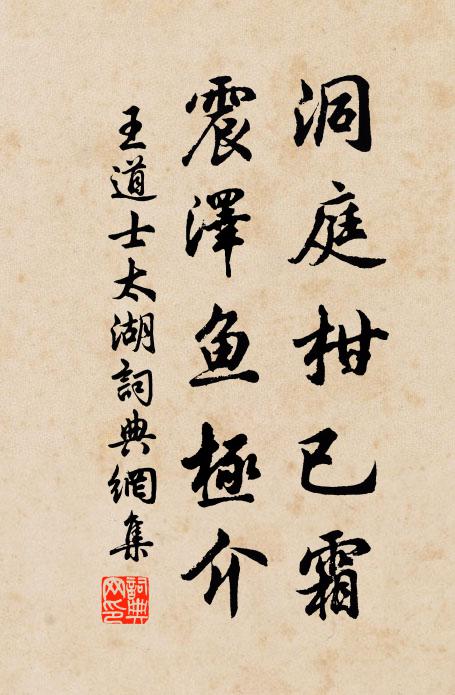 洞庭柑已霜
震澤鱼極介
王道士太湖詞典網集
詞典网印